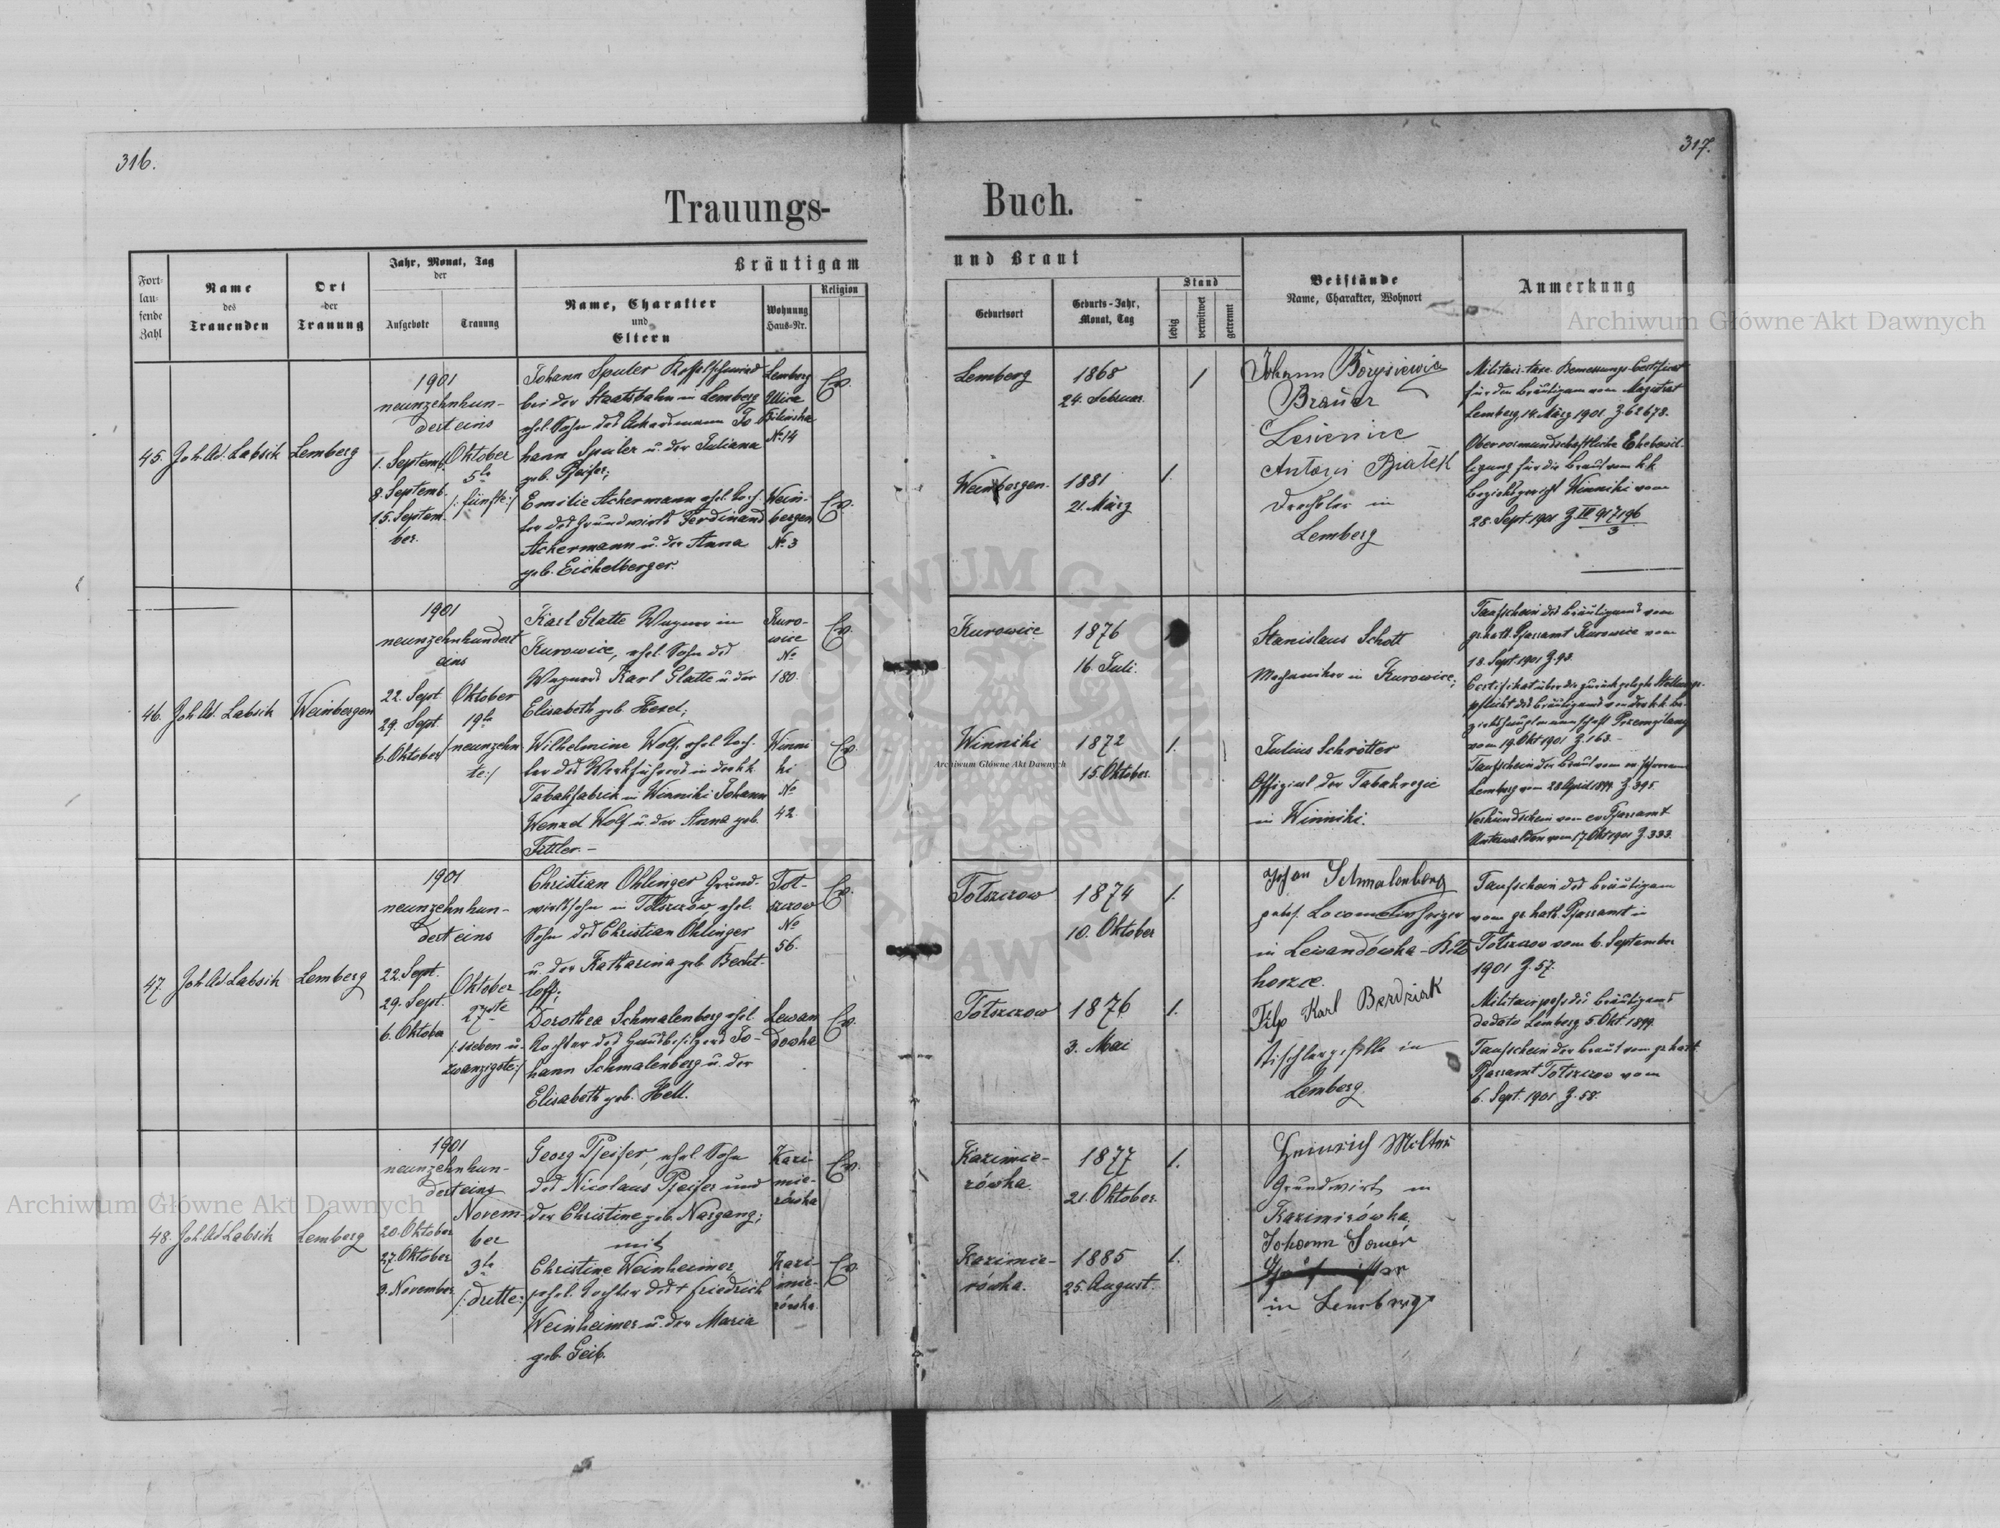 316.
317.
Trauungs-
Buch.
Fort-
lau-
fende
Zahl
Name
des
Trauenden
Ort
der
Trauung
Jahr, Monat, Tag
der
Aufgebote
Trauung
Bräutigam
Name, Charakter
und
Eltern
Wohnung
Haus-Nr.
Religion
und Braut
Geburtsort
Geburts-Jahr,
Monat, Tag
Stand
ledig
verwitwet
getrennt
Beistände
Name, Charakter, Wohnort
Anmerkung
45.
Joh. Ad. Labsik
Lemberg
1901
neunzehnhun-
dert eins
1. Septemb.
8. Septemb.
15. Septem-
ber.
Oktober
5te
/: fünfte :/
Johann Spuler Kesselschmied
bei der Staatsbahn in Lemberg
ehel. Sohn des Jo-
hann Spuler u. der Juliana
geb. Pfeifer;
Emilie Ackermann ehel. Toch-
ter des Grundwirts Ferdinand
Ackermann u. der Anna
geb. Eichelberger.
Lemberg
Ulica
Bilinska
No 14
Wein-
bergen
No. 3
Ev.
Ev.
Lemberg
1868
24. Februar.
Weinbergen.
1881
21. März
Johann Borysiewicz
Brauer
Lesienice
Antoni Białek
Drechsler in
Lemberg
Militär-taxe Bemessungs-Certifikat
für den Bräutigam vom Magistrat
Lemberg, 14. März 1901 Z. 62678.
Obervormundschaftliche Ehebewil-
ligung für die Braut vom k.k.
Bezirksgericht Winniki vom
28. Sept. 1901 Z.
46.
Joh. Ad. Labsik
Weinbergen
1901
neunzehnhundert
eins
22. Sept
29. Sept.
6. Oktober
Oktober
19te
/neunzehn
te:/
Karl Glatte Wagner in
Kurowice, ehel. Sohn des
Wagners Karl Glatte u. der
Elisabeth geb.
Wilhelmine Wolf, ehel. Toch-
ter des Werkführers in der k.k.
Tabakfabrik in Winniki Johann
Wenzel Wolf u. der Anna geb.
Kuro-
wice
No
180.
Winni
ki
No
42.
Ev.
Ev.
Kurowice
1876
16. Juli.
Winniki
1872
15. Oktober.
Stanislaus Schott
Mechaniker in Kurowice;
Julius Schrötter
Offizial der Tabakregie
in Winniki.
Taufschein des Bräutigams vom
gr. kath. Pfarramt Kurowice vom
18. Sept. 1901 Z. 93.
Certifikat über die zurückgelegte Stellungs-
pflicht des Bräutigams von der k.k. Be-
zirkshauptmannschaft Przemyslany
vom 19. Okt 1901 Z. 163.
Taufschein der Braut vom ev. Pfarramt
Lemberg vom 28 April 1899 Z. 395.
Verkündschein vom ev. Pfarramt
Unterwalden vom 17. Okt 1901 Z. 333.
47.
Joh. Ad. Labsik
Lemberg
1901
neunzehnhun-
dert eins
22. Sept.
29. Sept.
6. Oktober
Oktober
27ste
/: sieben u.
zwanzigste:/
Christian Ohlinger Grund-
wirtssohn in Tołszczow ehel.
Sohn des Christian Ohlinger
u. der Katharina geb. Becht-
loff;
Dorothea Schmalenberg ehel.
Tochter des Grundbesitzers Jo-
hann Schmalenberg u. der
Elisabeth geb. Hell.
Toł-
szczow
No
56.
Lewan
dowka
Ev.
Ev.
Tołszczow
1874
10. Oktober
Tołszczow
1876
3. Mai
Johan Schmalenberg
gebes. Locomotivheizer
in Lewandowka – Bilo
horzce.
Filp Karl Berdziak
Tischlergeselle in
Lemberg.
Taufschein des Bräutigam
vom gr. kath. Pfarramt in
Tołszczow vom 6. September
1901 Z. 57.
Militairpass des Bräutigams
dedato Lemberg 5. Okt. 1899.
Taufschein der Braut vom gr. kath.
Pfarramt Tołszczow vom
6. Sept. 1901 Z. 58.
48.
Joh. Ad Labsik
Lemberg
1901
neunzehnhun-
dert eins
20. Oktober
27. Oktober
3. November
Novem-
ber
3te
/: dritte :/
Georg Pfeifer, ehel. Sohn
des Nicolaus Pfeifer und
der Christine geb. Nargang;
mit
Christine Weinheimer,
ehel. Tochter des † Friedrich
Weinheimer u. der Maria
geb. Geib.
Kazi-
mie-
rówka
Kazi-
mie-
rówka.
Ev.
Ev.
Kazimie-
rówka.
1877
21. Oktober.
Kazimie-
rówka.
1885
25. August.
Heinrich Molter
Grundwirt in
Kazimirówka.
Johann
in Lemberg
Archiwum Główne Akt Dawnych
Archiwum Główne Akt Dawnych
Archiwum Główne Akt Dawnych
ARCHIWUM GŁÓWNE AKT DAWNYCH